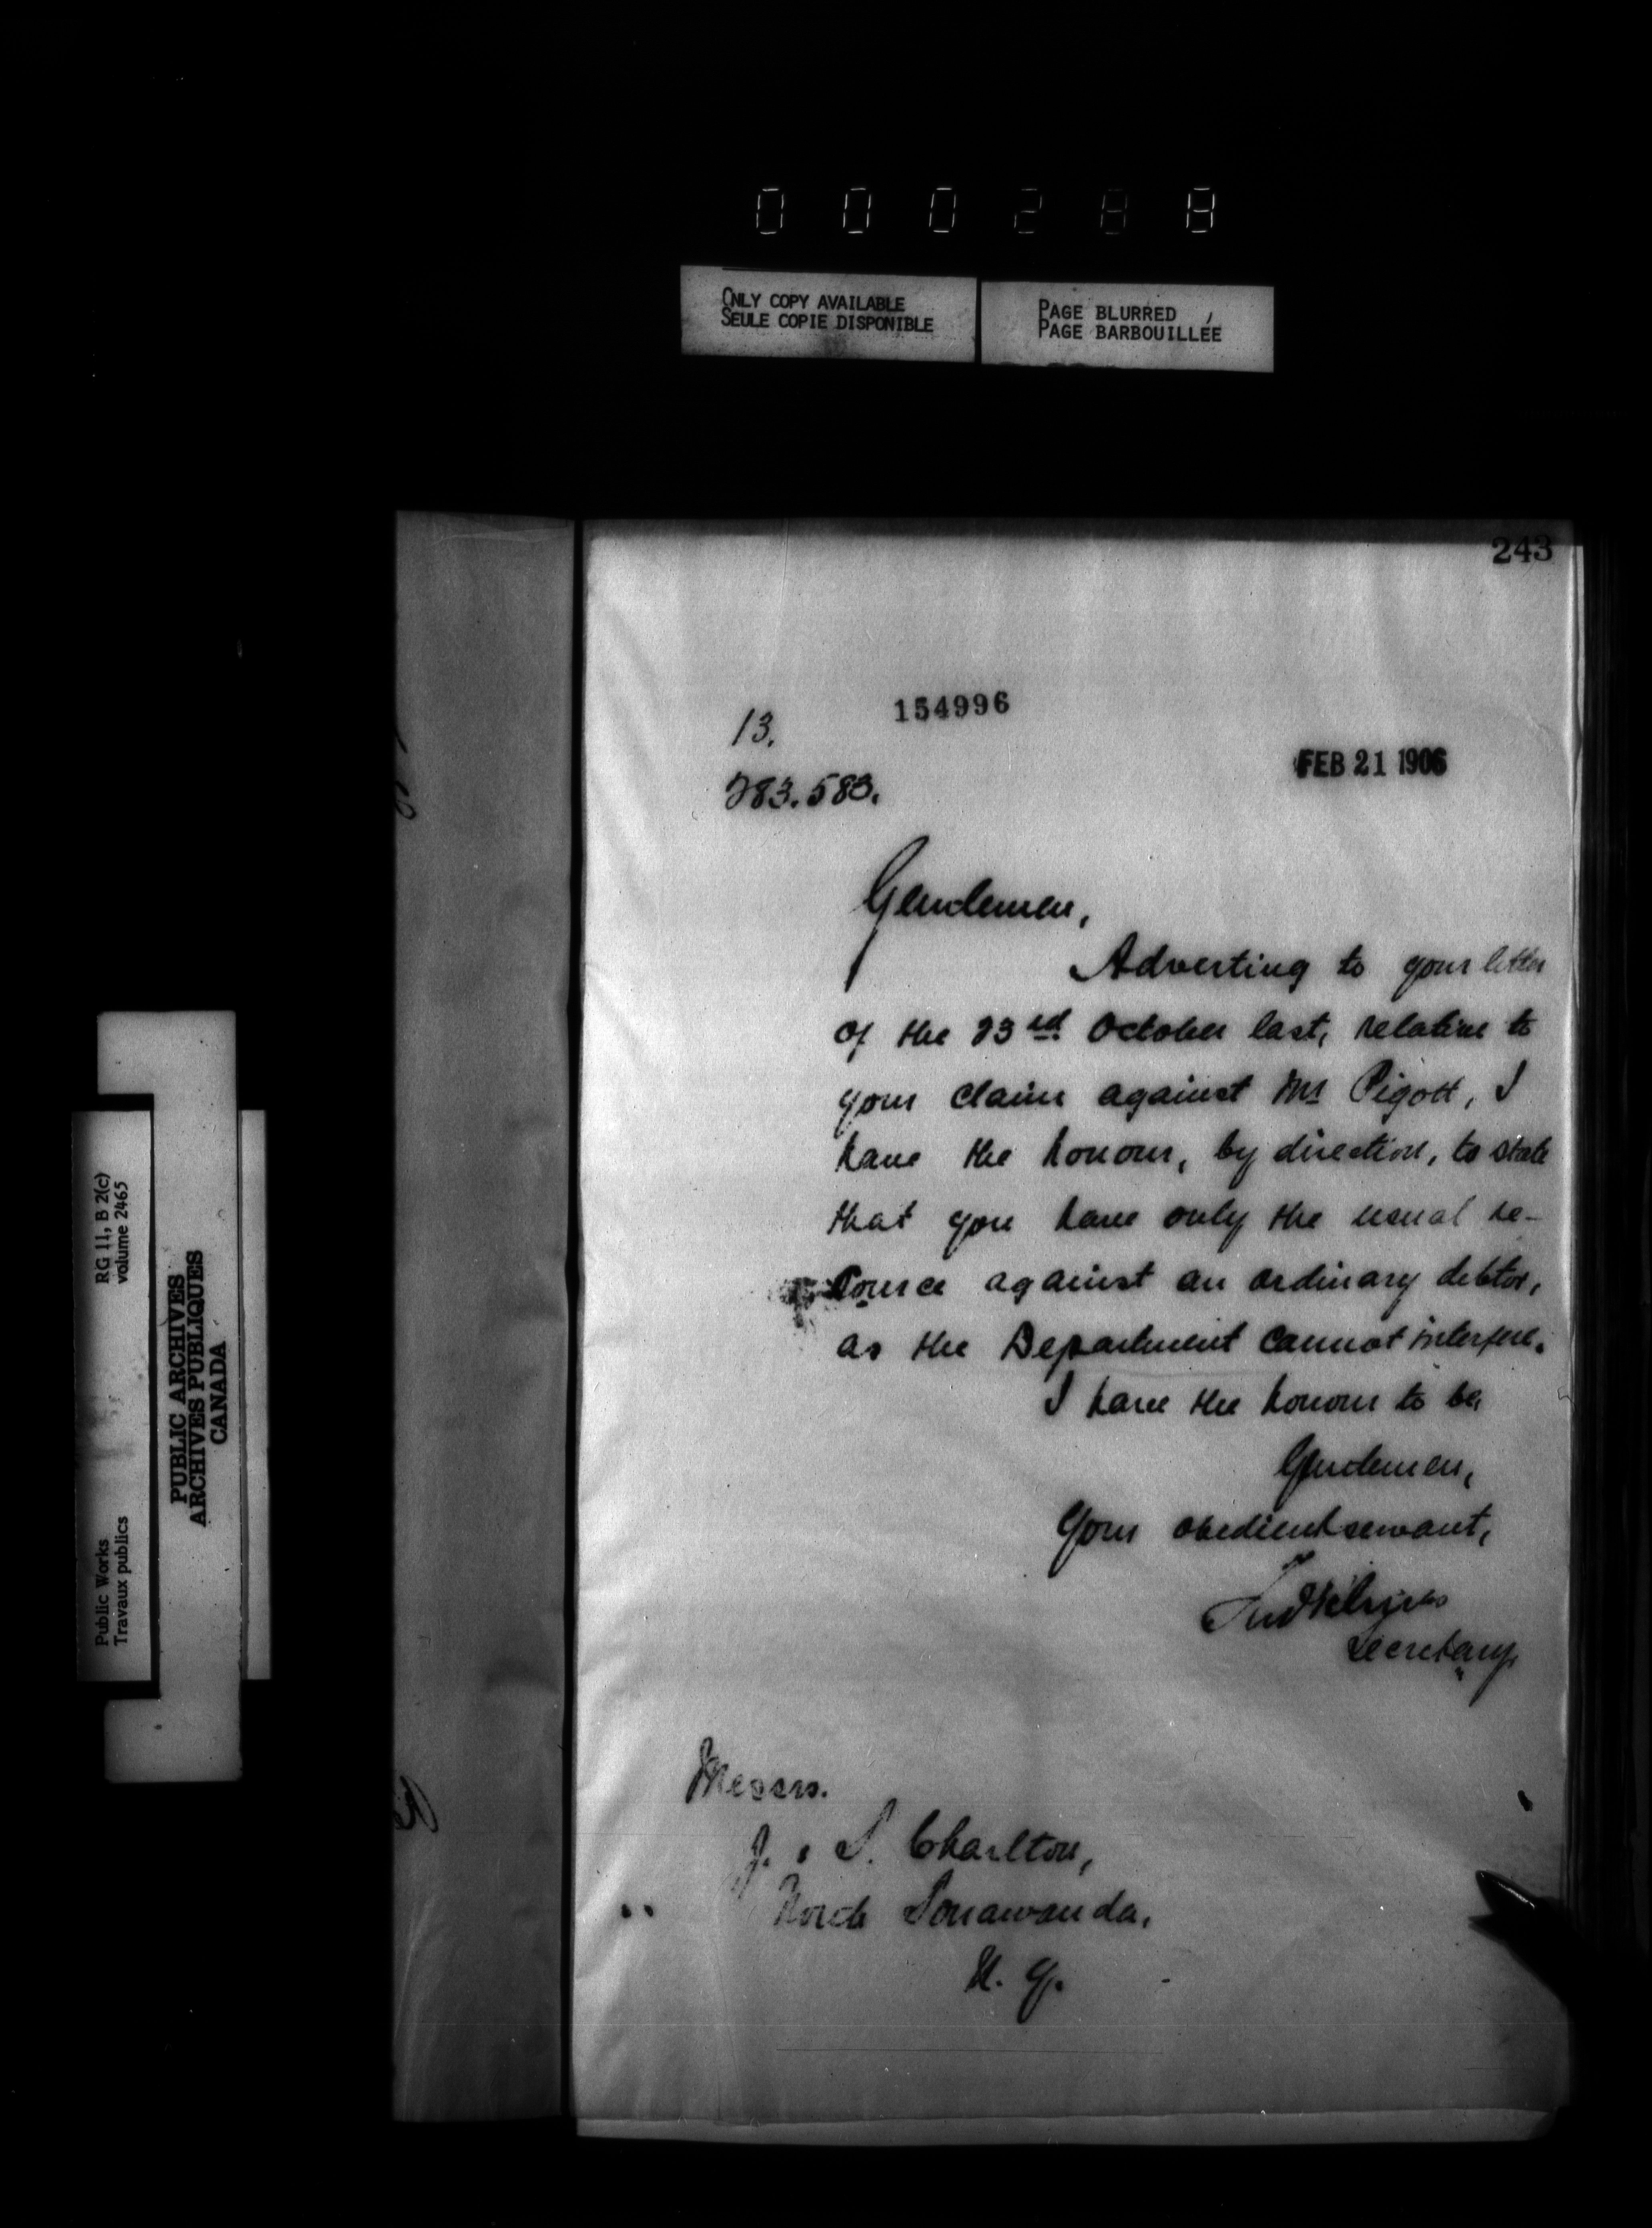 000288
ONLY COPY AVAILABLE
SEULE COPIE DISPONIBLE
PAGE BLURRED
PAGE BARBOUILLÉE
243
154996
13.
FEB 21 1906
283.583.
Gentlemen,
Adverting to your letter
of the 23rd October last, relative to
your claim against Mr Pigott, I
have the honour, by direction, to state
that you have only the usual re-
course against an ordinary debtor,
as the Department cannot interfere.
I have the honour to be,
Gentlemen,
Your obedient servant,
Secretary
Messrs.
J. & S. Charlton,
North Tonawanda,
N. Y.
RG 11, B 2(c)
volume 2465
Public Works
Travaux publics
PUBLIC ARCHIVES
ARCHIVES PUBLIQUES
CANADA